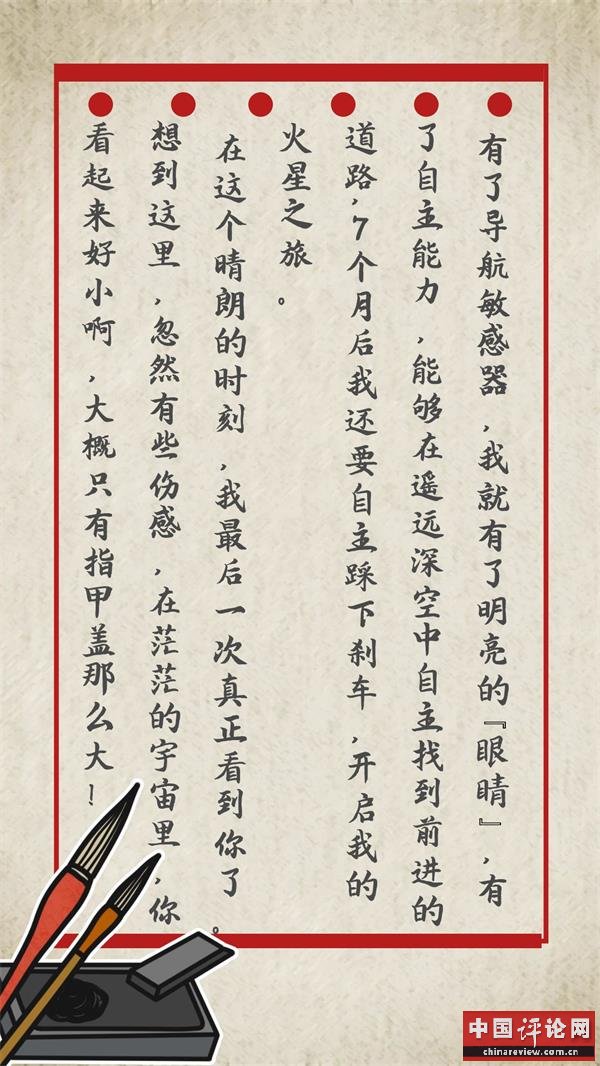 有了导航敏感器，我就有了明亮的『眼睛』，有
了自主能力，能够在遥远深空中自主找到前进的
道路，7个月后我还要自主踩下刹车，开启我的
火星之旅。
在这个晴朗的时刻，我最后一次真正看到你了。
想到这里，忽然有些伤感，在茫茫的宇宙里，你
看起来好小啊，大概只有指甲盖那么大！
中国评论网
chinareview.com.cn